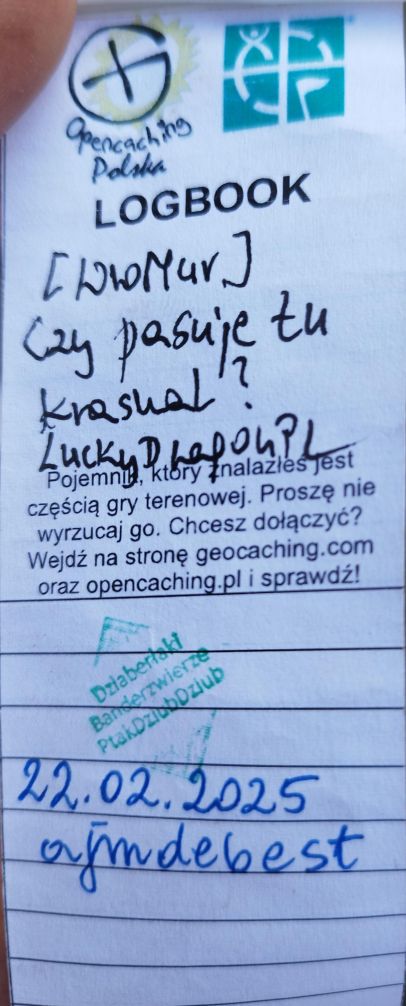 Opencaching
Polska
LOGBOOK
[WroMur]
Czy pasuje tu
krasnal?
LuckyDragonPL
Pojemnik, który znalazłeś jest
częścią gry terenowej. Proszę nie
wyrzucaj go. Chcesz dołączyć?
Wejdź na stronę geocaching.com
oraz opencaching.pl i sprawdź!
Dziaberlaki
Banderzwierze
PtakDziubDziub
22.02.2025
ajmdebest